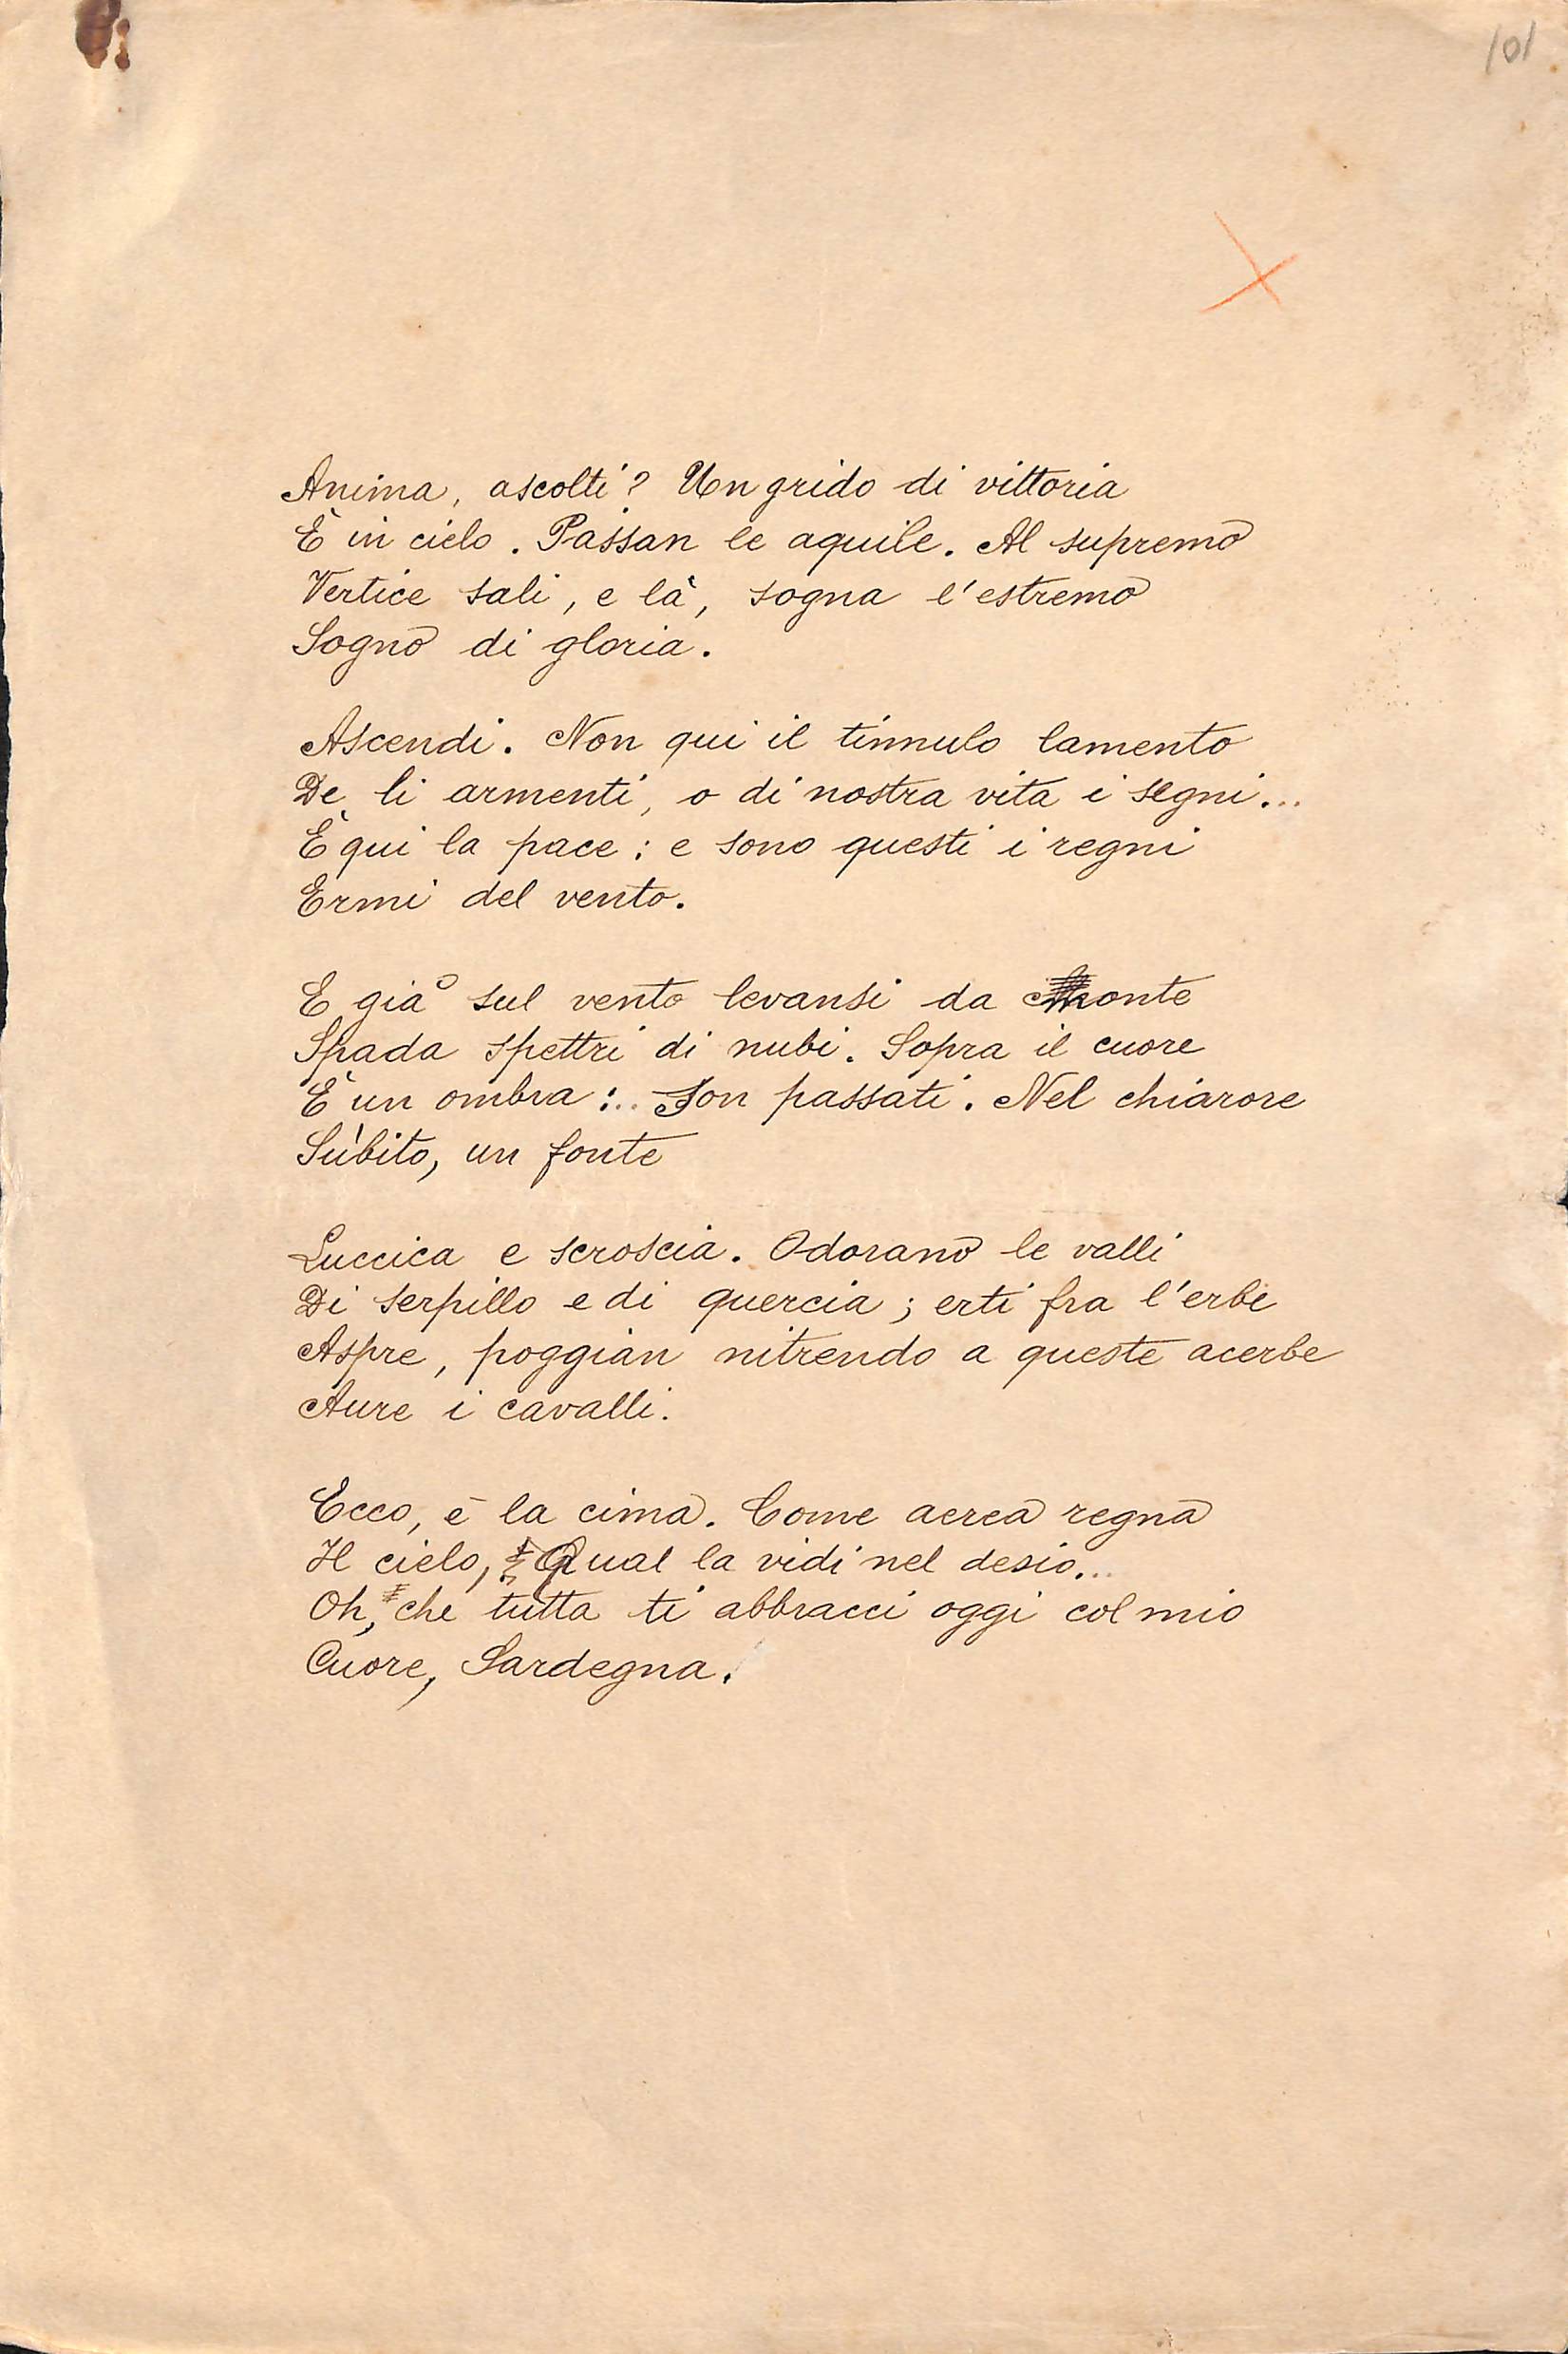 101
Anima, ascolti? Un grido di vittoria
È in cielo. Passan le aquile. Al supremo
Vertice sali, e là, sogna l'estremo
Sogno di gloria.
Ascendi. Non qui il tinnulo lamento
De li armenti, o di nostra vita i segni...
È qui la pace: e sono questi i regni
Ermi del vento.
E già sul vento levansi da Monte
Spada spettri di nubi. Sopra il cuore
È un ombra:.. Son passati. Nel chiarore
Sùbito, un fonte
Luccica e scroscia. Odorano le valli
Di serpillo e di quercia; erti fra l'erbe
Aspre, poggian nitrendo a queste acerbe
Aure i cavalli.
Ecco, è la cima. Come aerea regna
Il cielo, Qual la vidi nel desio...
Oh, che tutta ti abbracci oggi col mio
Cuore, Sardegna.